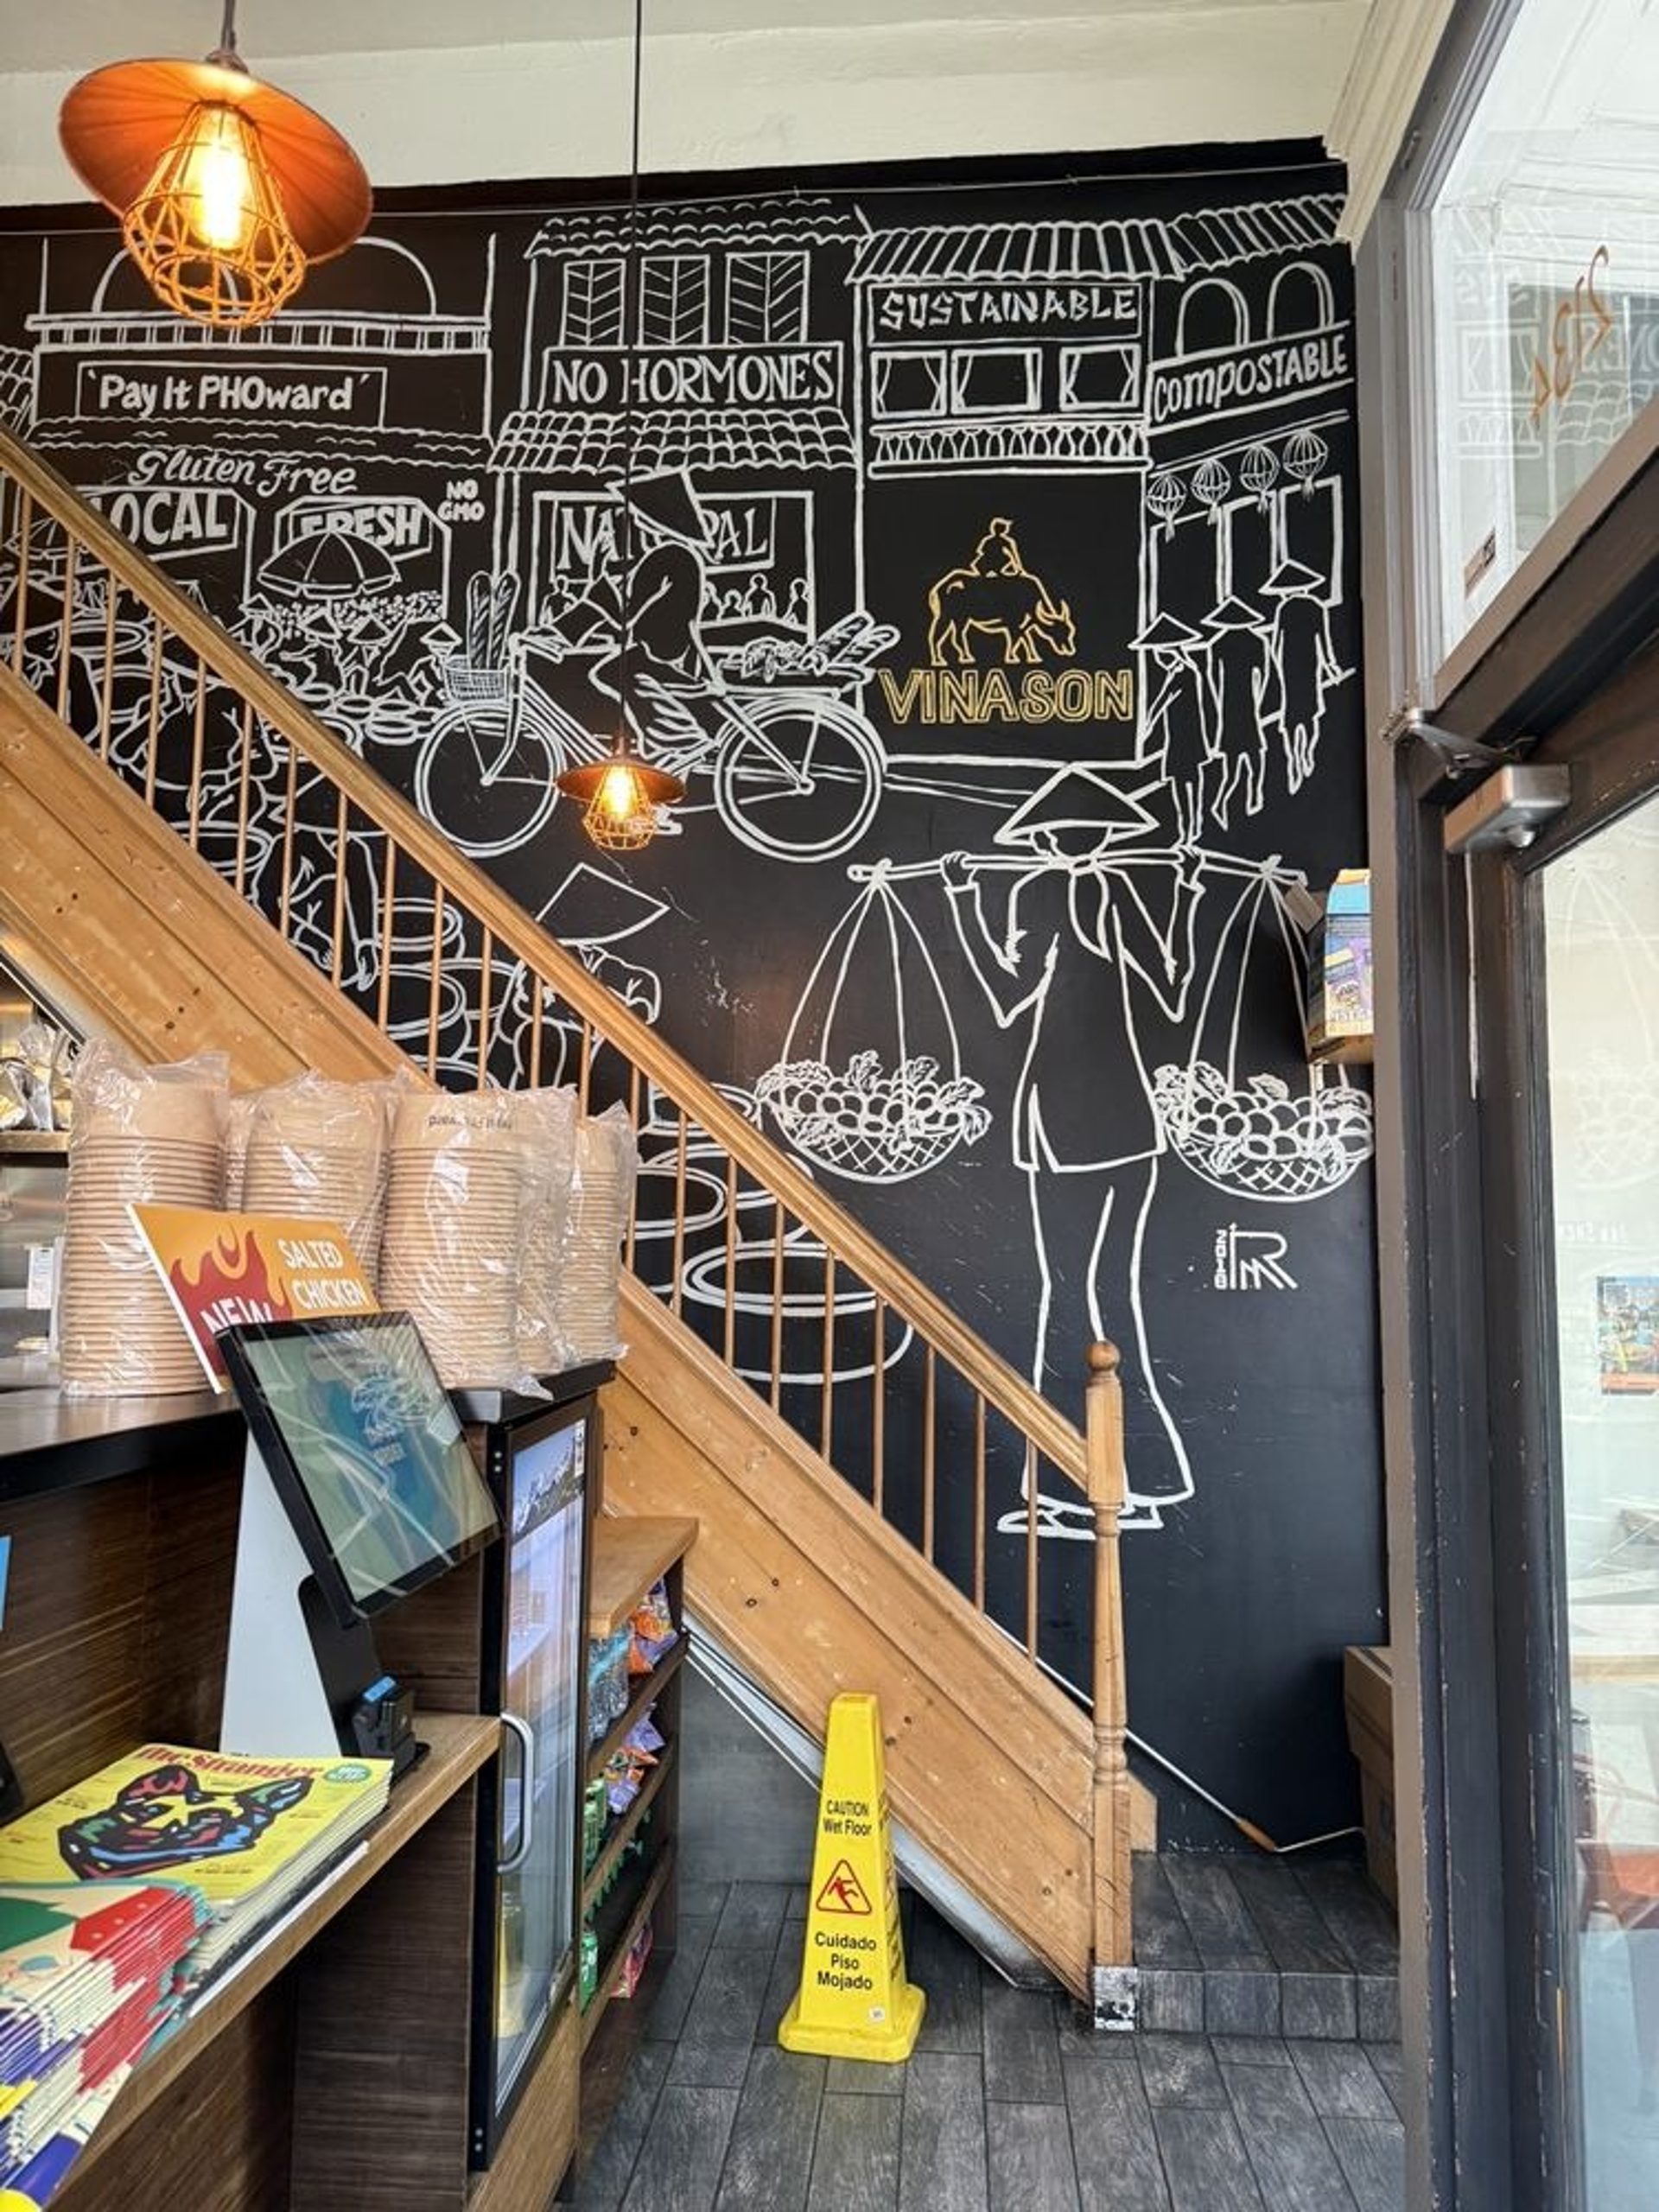 SUSTAINABLE
'Pay It PHOward'
NO HORMONES
COMPOSTABLE
Gluten Free
LOCAL
FRESH
NO
GMO
VINASON
SALTED
CHICKEN
NEW
The Stranger
CAUTION
Wet Floor
Cuidado
Piso
Mojado